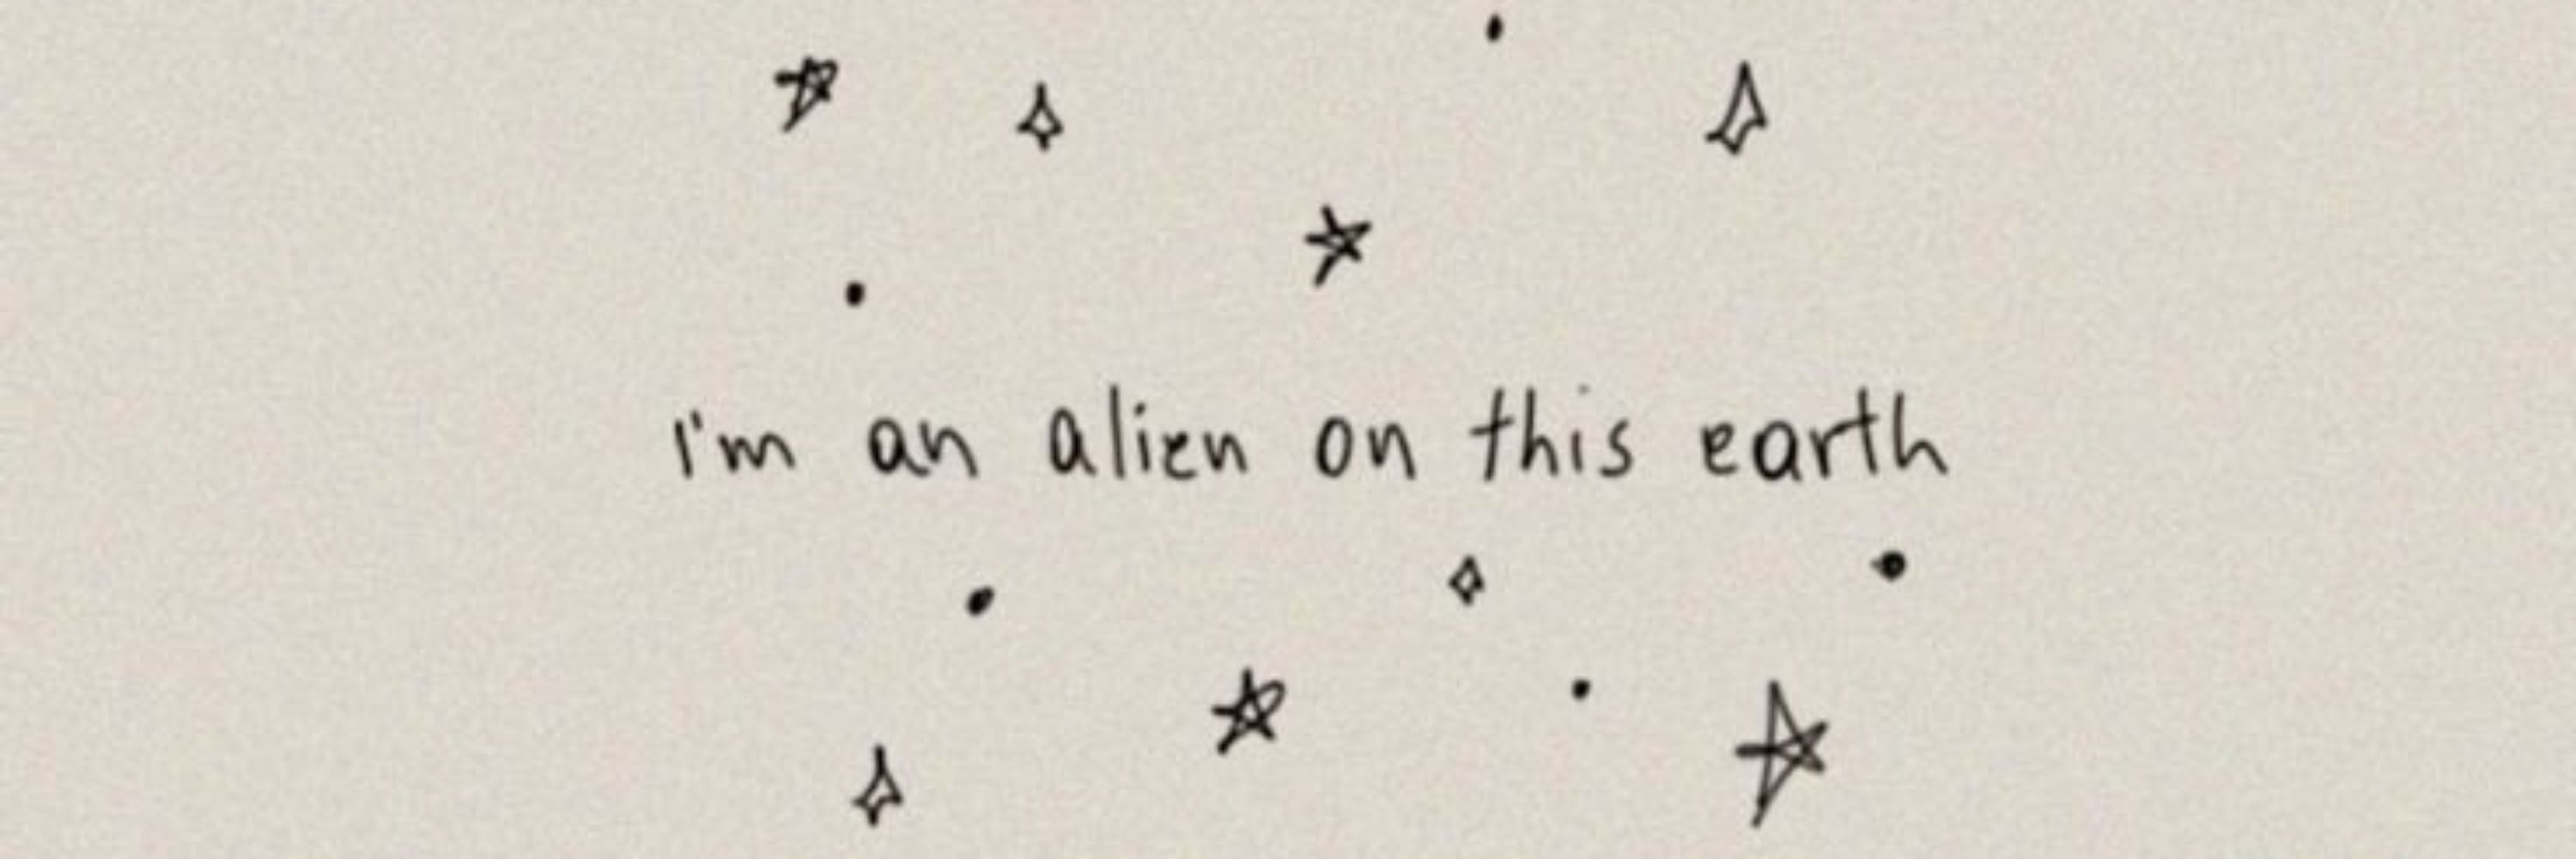 i'm an alien on this earth